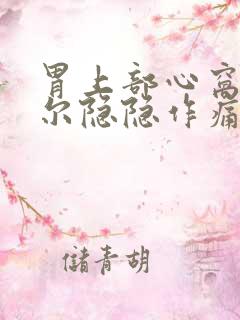 胃上部心窝
尔隐隐作痛
储青胡